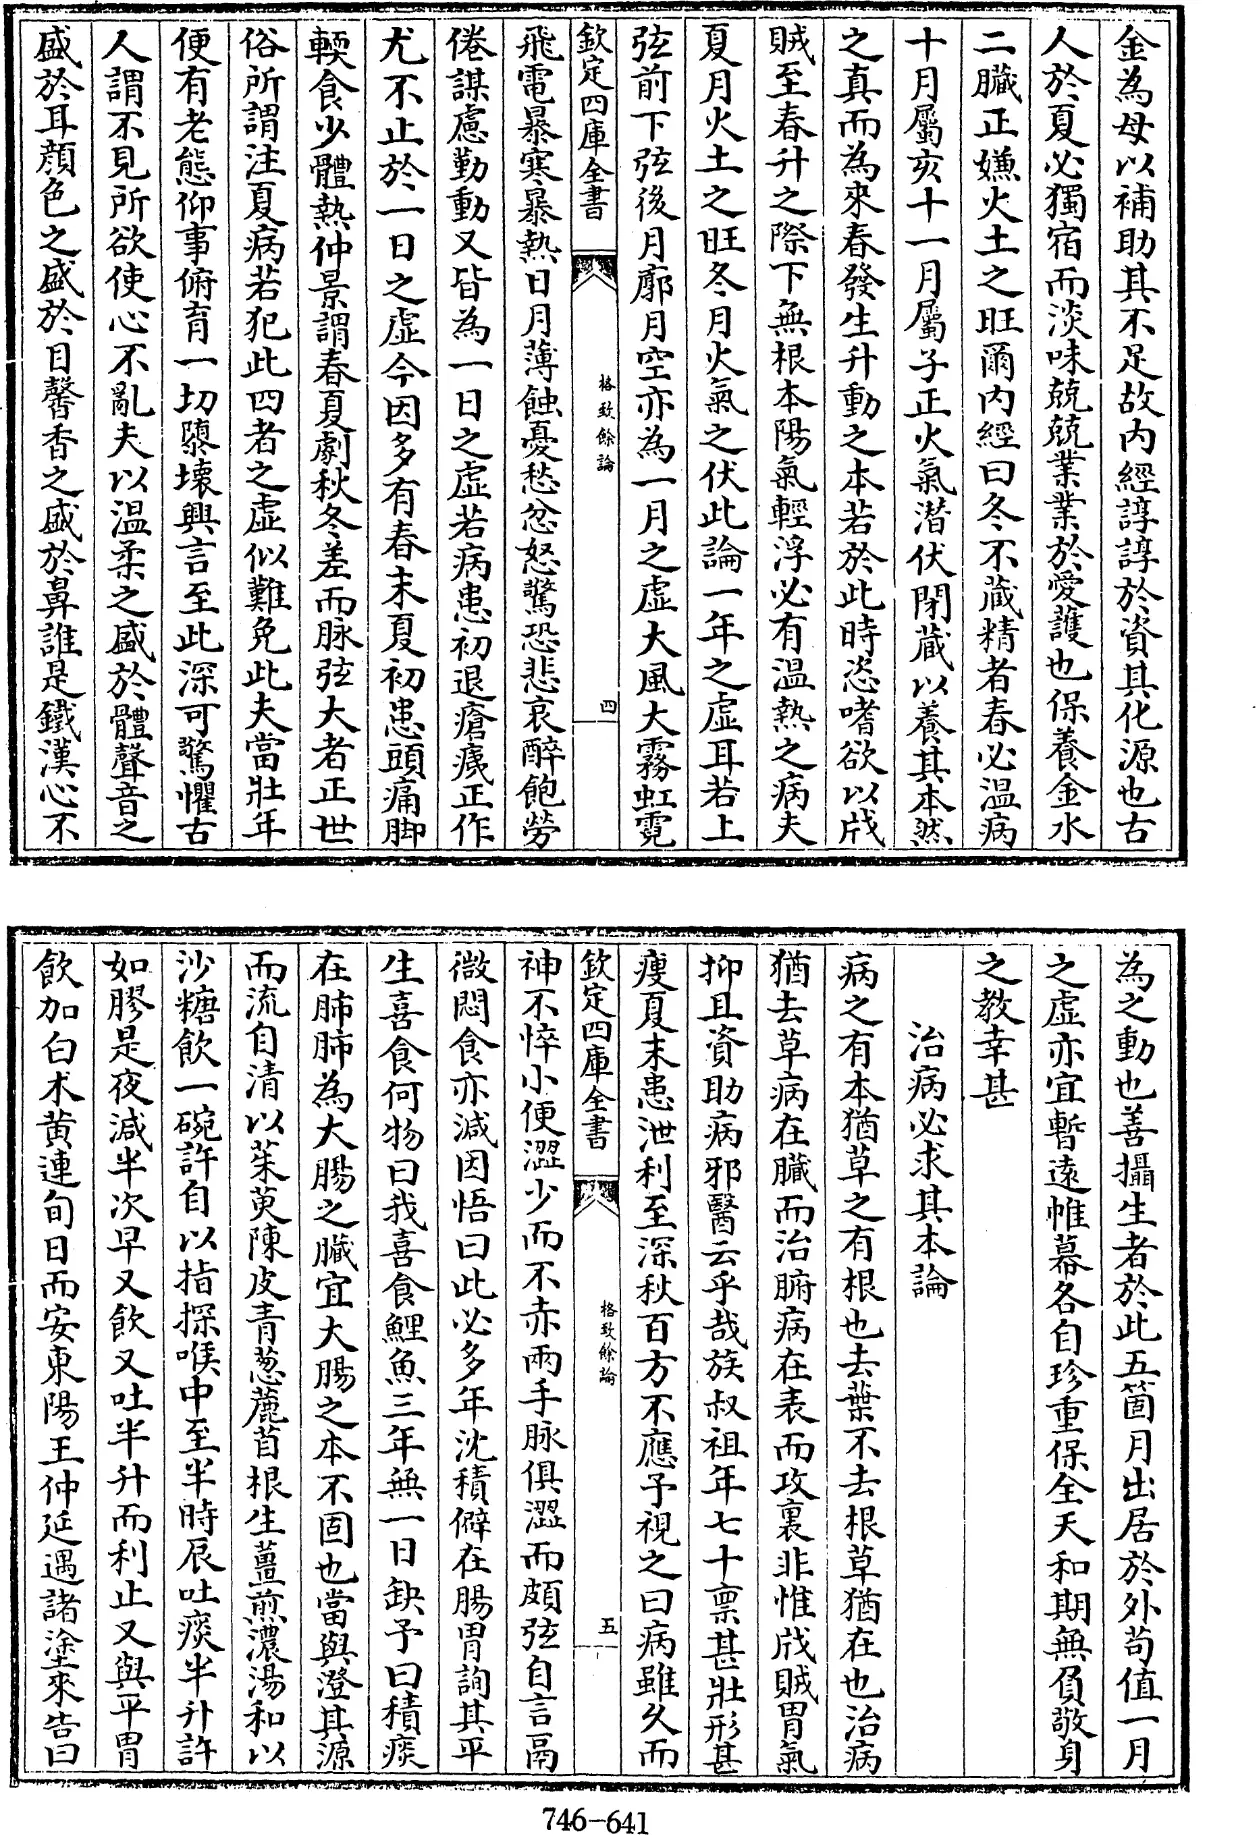 金為母以補助其不足故内經諄諄於資其化源也古
人於夏必獨宿而淡味兢兢業業於愛護也保養金水
二臟正嫌火土之旺爾内經曰冬不藏精者春必温病
十月屬亥十一月屬子正火氣潛伏閉藏以養其本然
之真而為來春發生升動之本若於此時恣嗜欲以戕
賊至春升之際下無根本陽氣輕浮必有温熱之病夫
夏月火土之旺冬月火氣之伏此論一年之虛耳若上
弦前下弦後月廓月空亦為一月之虛大風大霧虹霓
欽定四庫全書
格致餘論
四
飛電暴寒暴熱日月薄蝕憂愁忿怒驚恐悲哀醉飽勞
倦謀慮勤動又皆為一日之虛若病患初退瘡痍正作
尤不止於一日之虛今因多有春末夏初患頭痛脚
輭食少體熱仲景謂春夏劇秋冬差而脉弦大者正世
俗所謂注夏病若犯此四者之虛似難免此夫當壯年
便有老態仰事俯育一切隳壞興言至此深可驚懼古
人謂不見所欲使心不亂夫以温柔之盛於體聲音之
盛於耳顔色之盛於目馨香之盛於鼻誰是鐵漢心不
為之動也善攝生者於此五箇月出居於外苟值一月
之虛亦宜暫遠帷幕各自珍重保全天和期無負敬身
之教幸甚
治病必求其本論
病之有本猶草之有根也去葉不去根草猶在也治病
猶去草病在臟而治腑病在表而攻裏非惟戕賊胃氣
抑且資助病邪醫云乎哉族叔祖年七十禀甚壯形甚
瘦夏末患泄利至深秋百方不應予視之曰病雖久而
欽定四庫全書
格致餘論
五
神不悴小便澀少而不赤兩手脉俱澀而頗弦自言鬲
微悶食亦減因悟曰此必多年沈積僻在腸胃詢其平
生喜食何物曰我喜食鯉魚三年無一日缺予曰積痰
在肺肺為大腸之臟宜大腸之本不固也當與澄其源
而流自清以茱萸陳皮青葱蔍苜根生薑煎濃湯和以
沙糖飲一碗許自以指探喉中至半時辰吐痰半升許
如膠是夜減半次早又飲又吐半升而利止又與平胃
飲加白术黄連旬日而安東陽王仲延遇諸塗來告曰
746-641